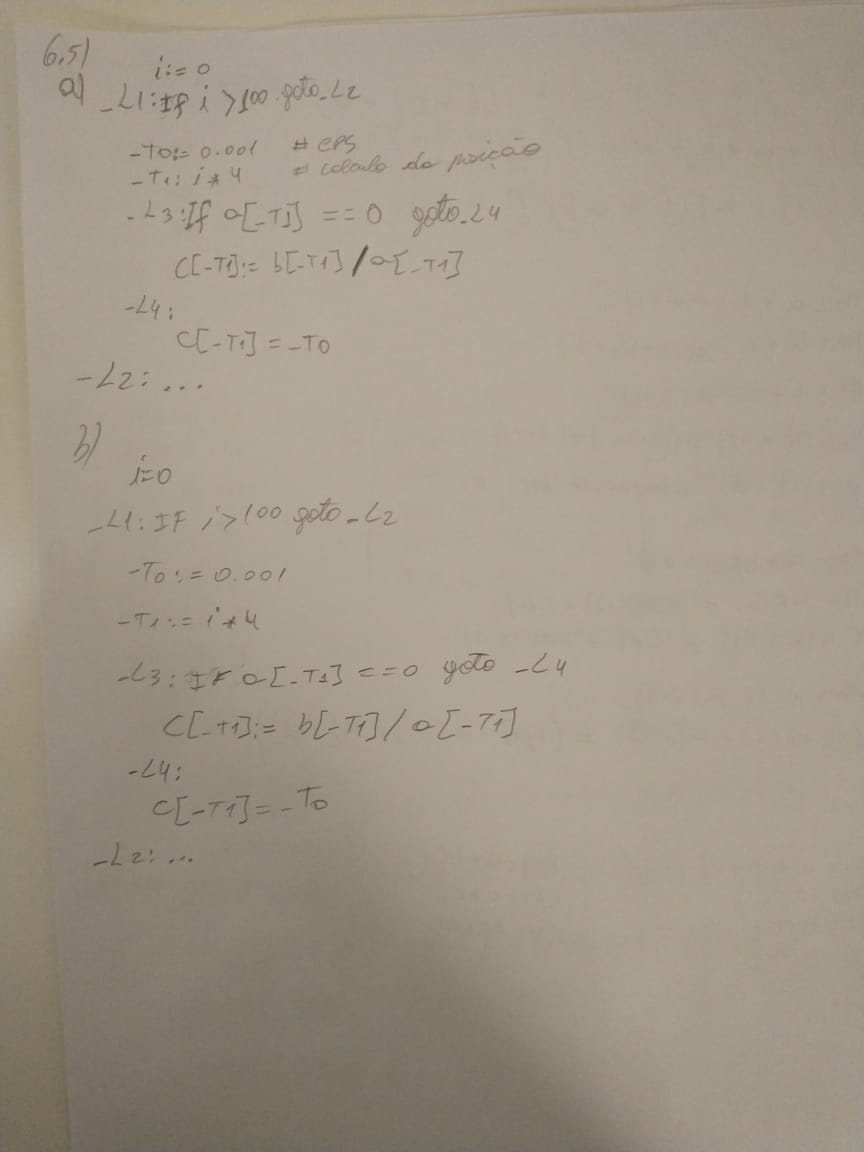 6.5)
i:= 0
a) _L1: If i > 100 goto _L2
_T0:= 0.001 # eps
_T1: i * 4 # calculo da posição
_L3: If a[_T1] == 0 goto _L4
C[_T1]:= b[_T1] / a[_T1]
_L4:
C[_T1] = _T0
_L2: ...
b)
i=0
_L1: IF i > 100 goto _L2
_T0:= 0.001
_T1:= i * 4
_L3: IF a[_T1] == 0 goto _L4
C[_T1]:= b[_T1] / a[_T1]
_L4:
C[_T1] = _T0
_L2: ...